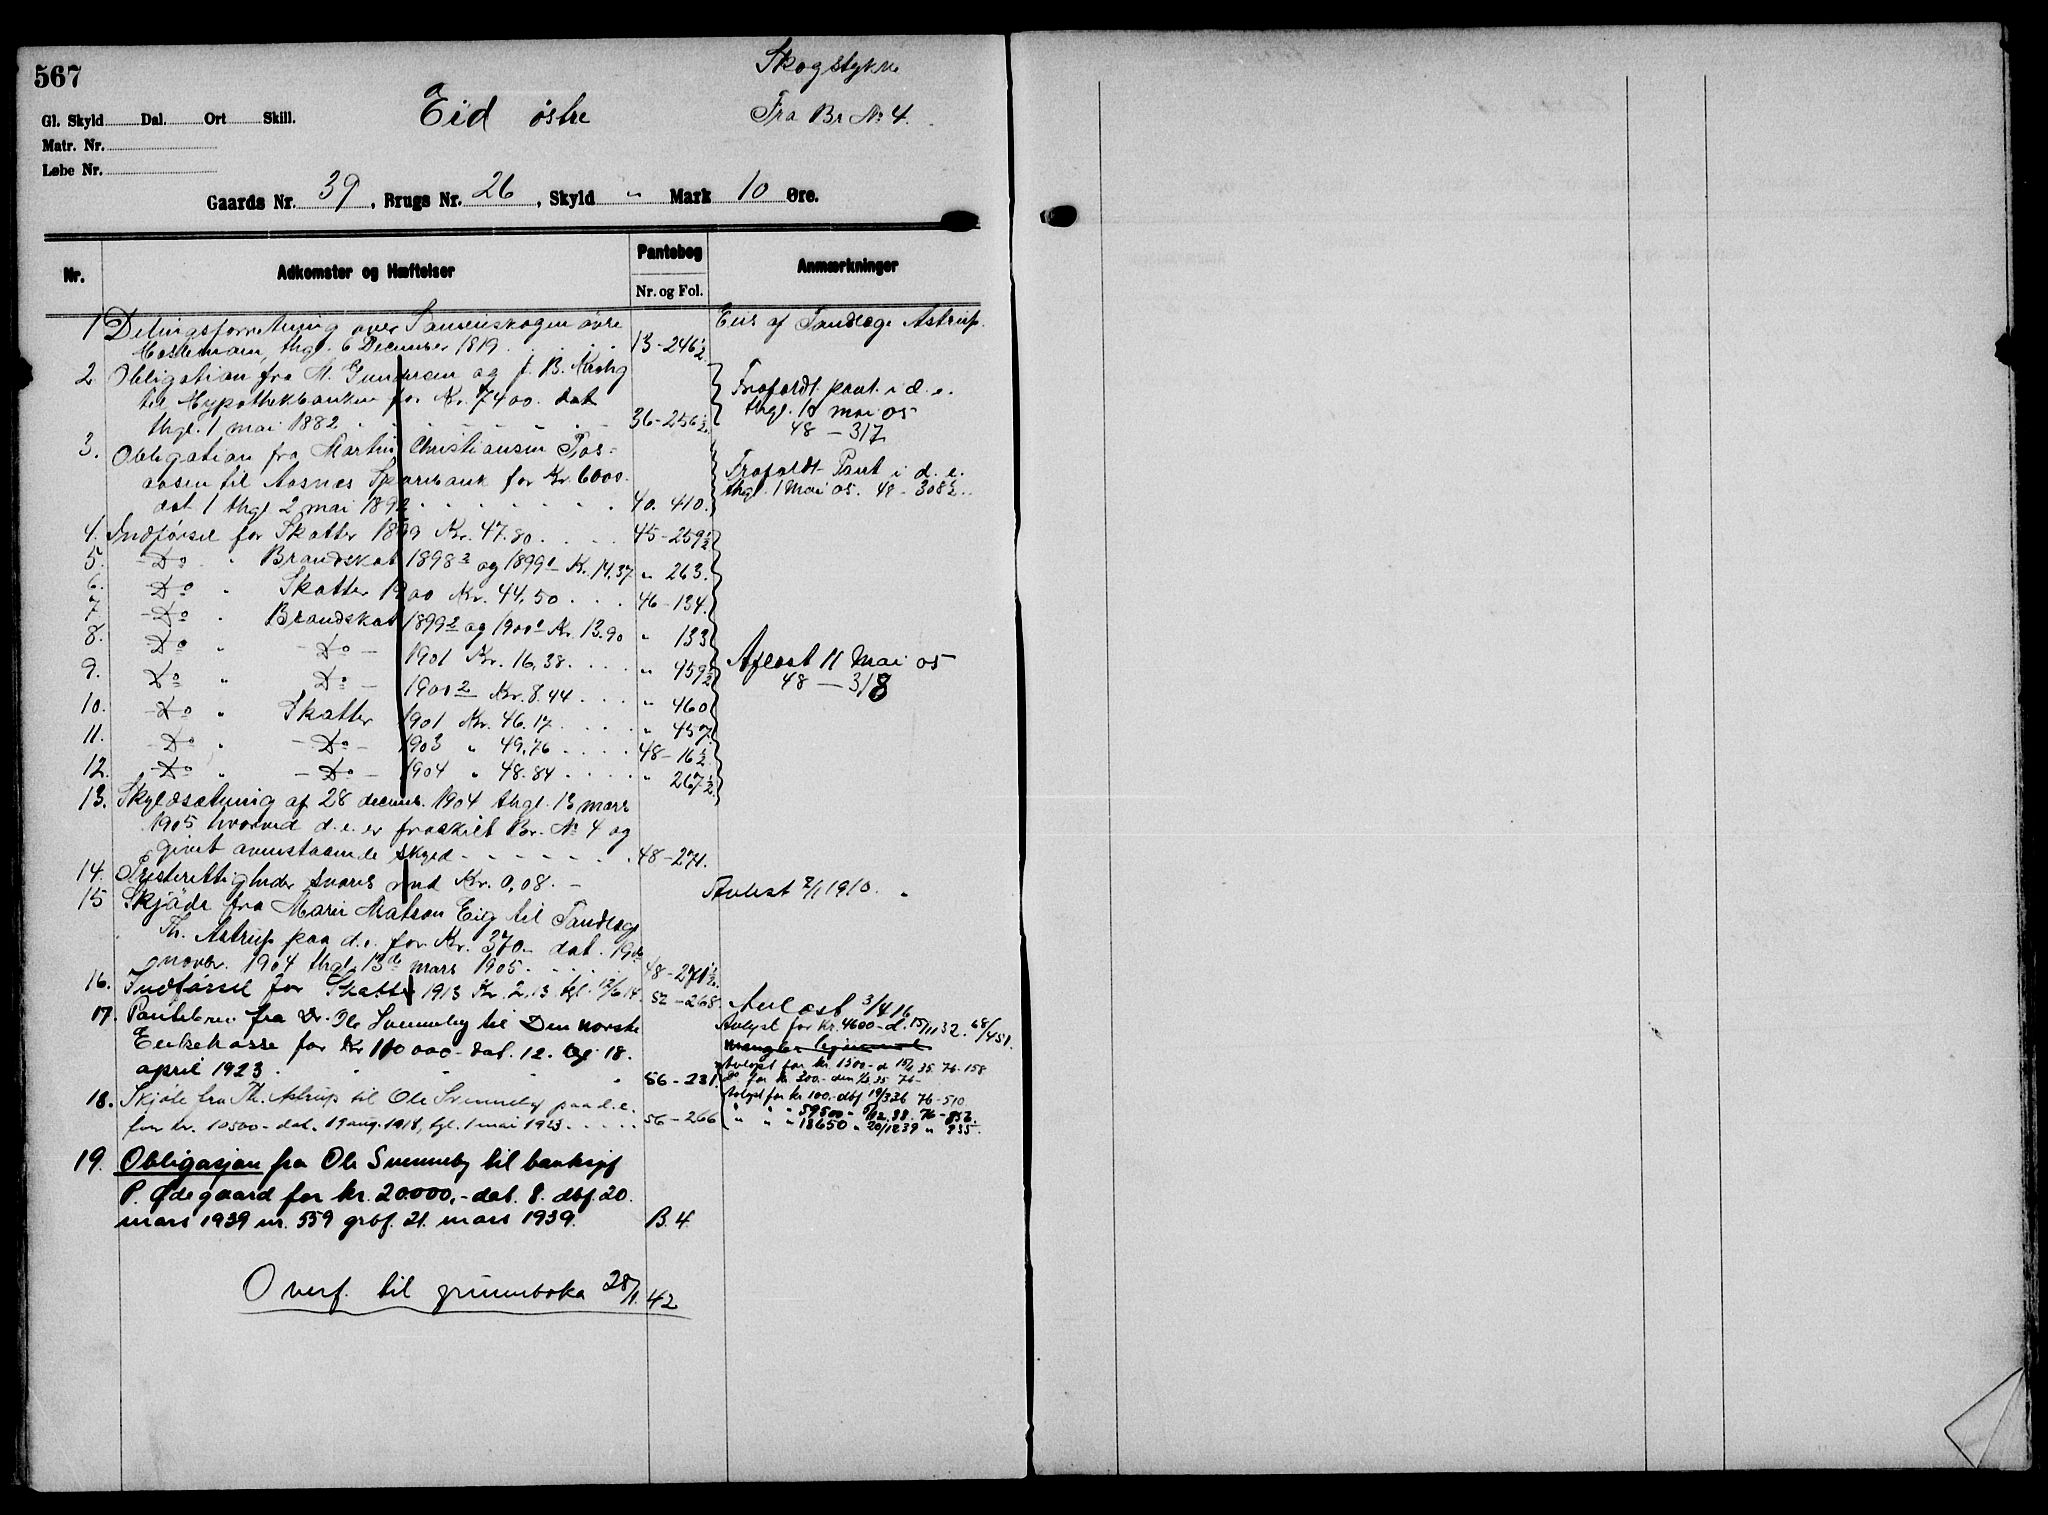 567
Skogstykke
Gl. Skyld Dal. Ort Skill.
Eid östre
Fra Br No 4.
Matr. Nr.
Løbe Nr.
Gaards Nr. 39, Brugs Nr. 26, Skyld " Mark 10 Øre.
Nr. Adkomster og Hæftelser Pantebog Nr. og Fol. Anmærkninger
1 Delingsforretning over övre Eies af Tandlæge Astrup.
thgl. 6 December 1819 . . . 13-246½
2 Obligation fra M. Gundersen og J. B. Krohg
til Hypothekbanken for Kr. 7400. dat Frafaldt pant i d. e.
thgl. 1 mai 1882 . . . 36-256½ thgl. 10 mai 05
48-317
3. Obligation fra Martin Christiansen
til Aasnes Sparebank for Kr. 6000. Frafaldt Pant i d. e.
dat 1 thgl 2 mai 1892 . . . 40. 410. thgl. 1 Mai 05. 48-308½.
4. Indförsel for Skatter 1899 Kr. 47.80 . . . 45-259½
5. -Do- " Brandskat 1898² og 1899¹ Kr. 14,37 " 263.
6. -Do- " Skatter 1900 Kr. 44,50 . . . 46-134.
7 -Do- " Brandskat 1899² og 1900¹ Kr. 13.90 " 133
8. Do " -Do- 1901 Kr. 16,38 . . . " 459½ Aflæst 11 Mai 05
9. Do " Do- 1900² Kr. 8.44 . . . " 460 48-318
10. -Do " Skatter 1901 Kr. 46.17 . . . " 457.
11. -Do " -Do- 1903 " 49,76 . . . 48-16½
12. -Do " -Do- 1904 " 48.84 . . . " 267½
13. Skyldsætning af 28 decemb. 1904 thgl. 13 mars
1905 hvorved d. e. er fraskilt Br. No 4 og
givet ovenstaaende skyld . . . 48-271.
14. Presterettigheder svares med Kr. 0,08. - Avlöst 2/1 1910.
15 Skjöde fra Marie Matson Eig til Tandlæge
Th. Astrup paa d. e. for Kr. 370. dat. 19de
novbr. 1904 thgl. 13de mars 1905 . . . 48-271½.
16. Indförsel for Skatter 1913 Kr. 2,13 tgl. 12/6 14. 52-268. Avlæst 3/4 16
17. Pantebrev fra Dr. Ole Svenneby til Den norske Avlyst for kr. 4600- d. 15/11 32. 68/451.
Enkekasse for Kr 110 000- dat. 12. tgl. 18. mangler
april 1923 . . . 56-231. Avlyst for kr. 1500- d 35. 76-158
Do for kr 300.- den 35 76-
18. Skjöte fra Th. Astrup til Ole Svenneby paa d. e. Avlyst for kr 100.- dbf 19/3 36 76-510
for kr. 10500- dat. 19 aug. 1918, tgl. 1 mai 1923 . . . 56-266 " " " 59500 " 12. 38. 76-852.
" " " 18650 " 20/12 39 " 935.
19. Obligasjon fra Ole Svenneby til banksjef
P. Ødegaard for kr. 20000,- dat. 8. dbf. 20.
mars 1939 nr. 559 grbf. 21. mars 1939. B. 4.
Overf. til grunnboka 28/1. 42